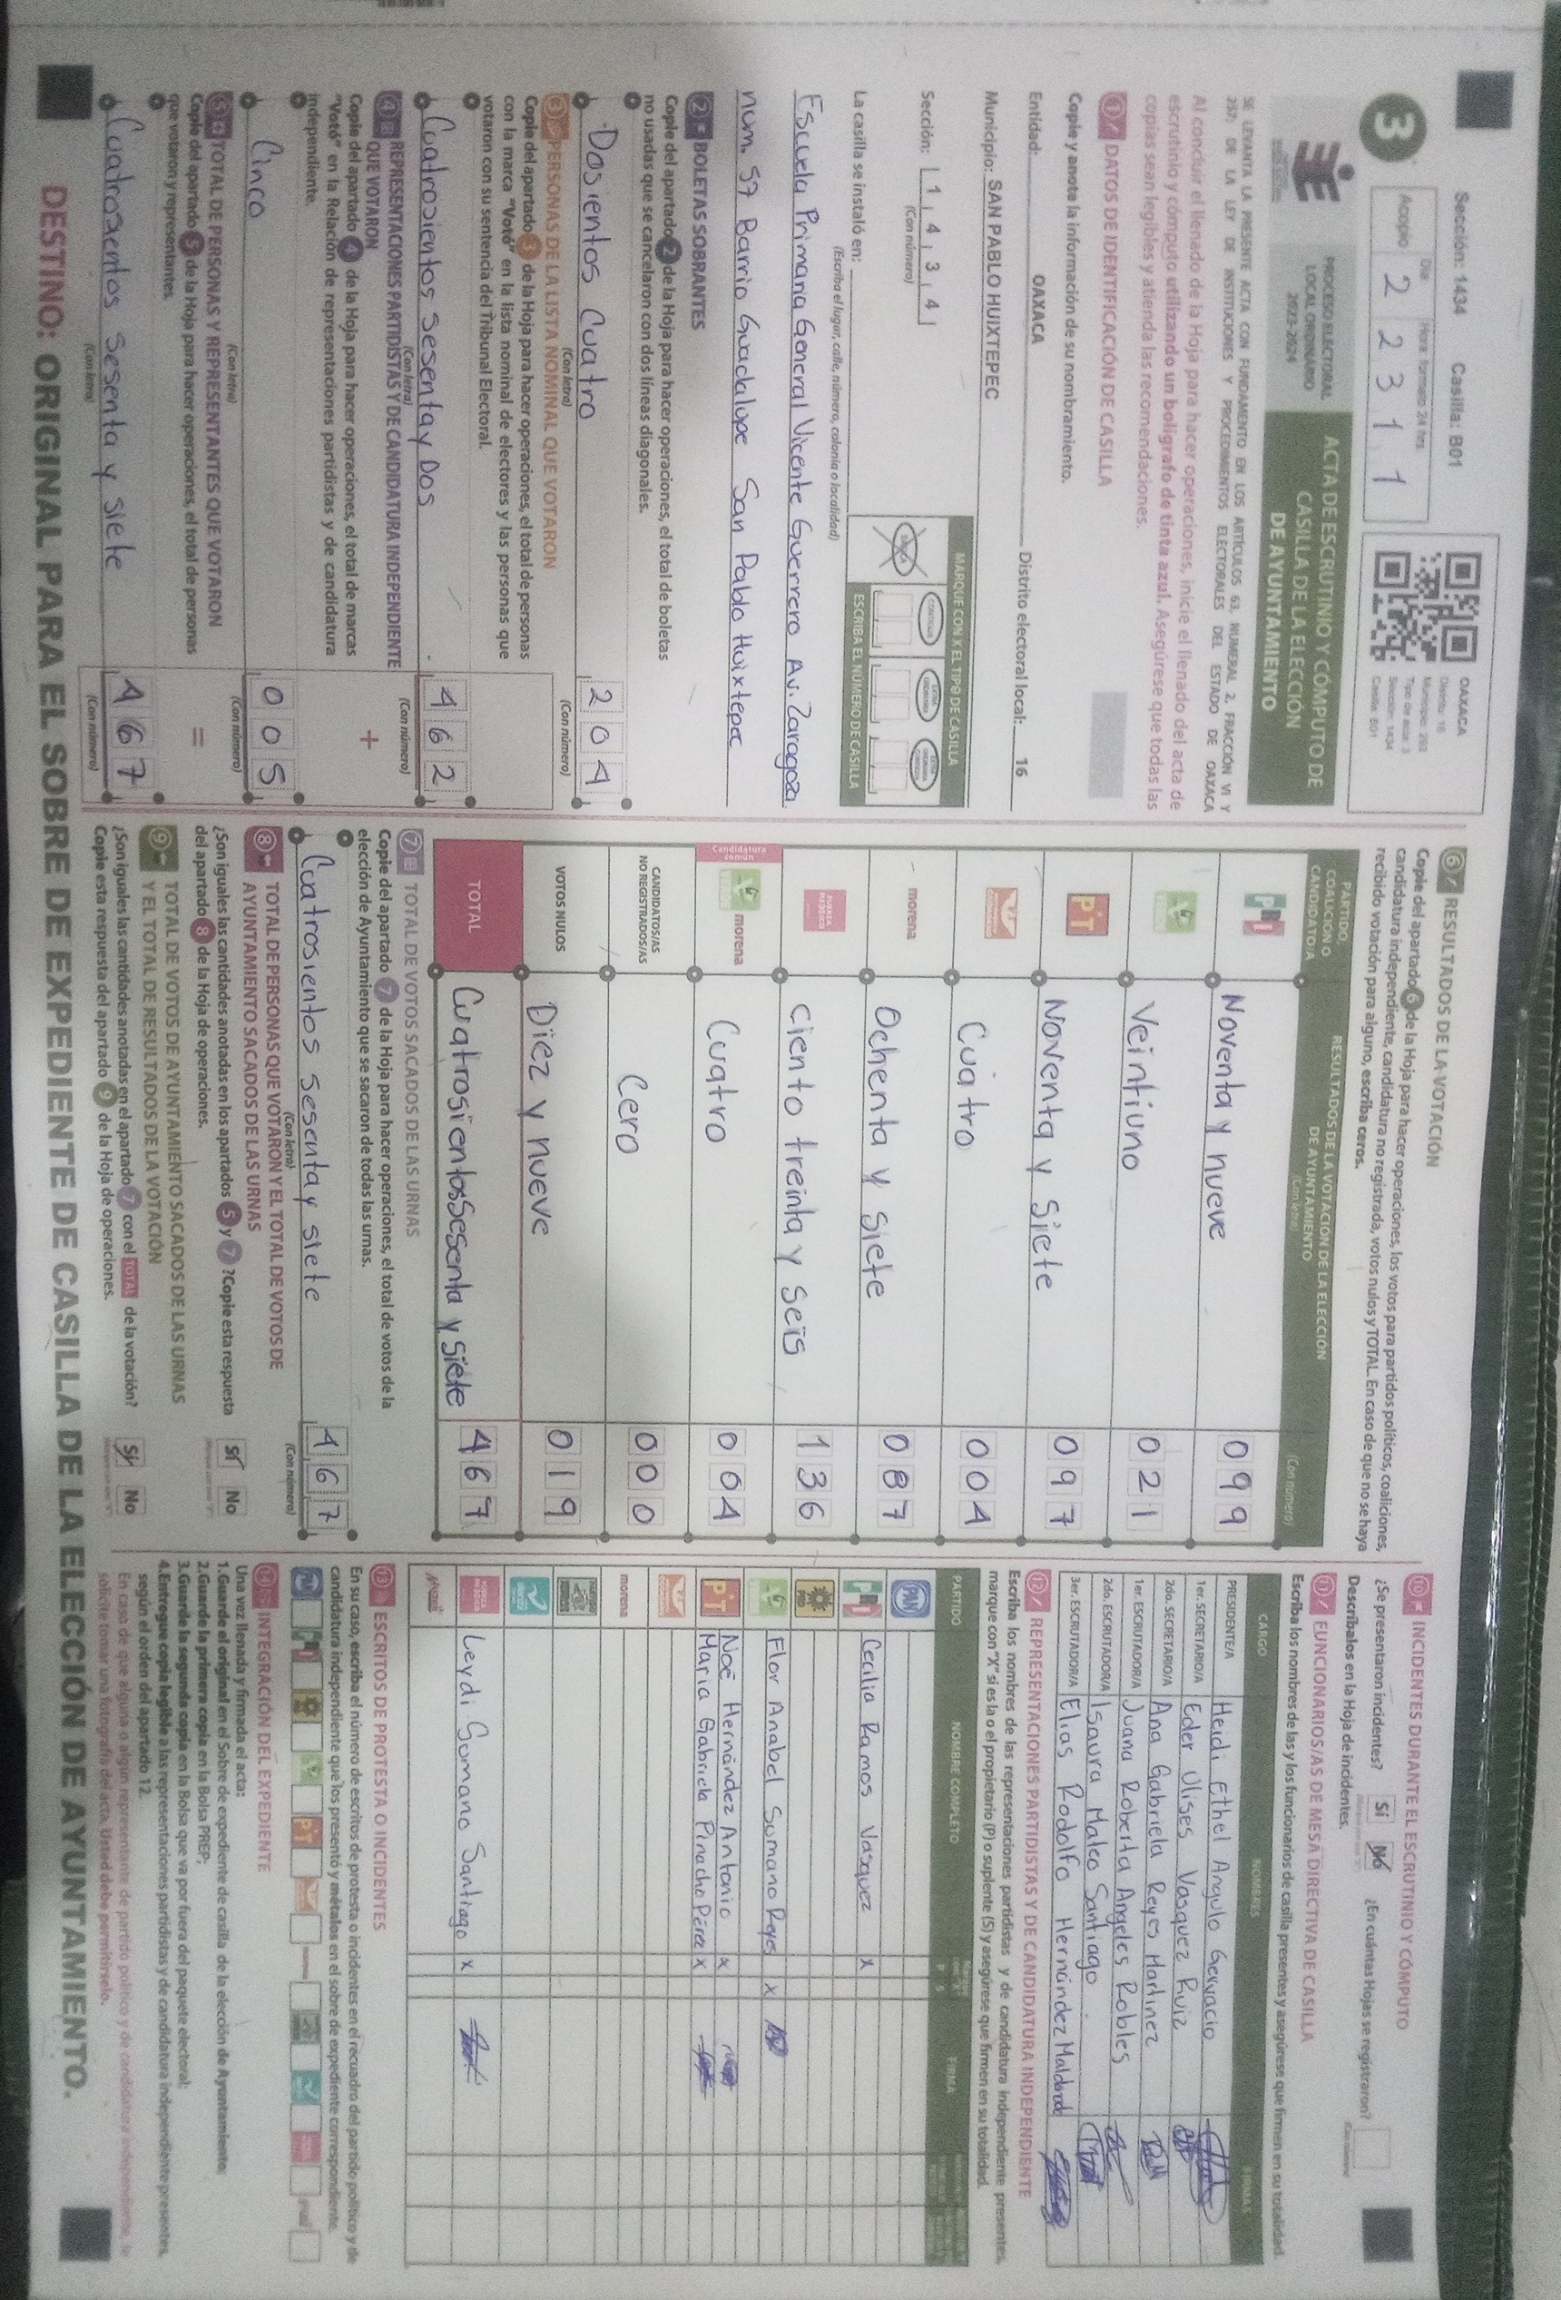 Sección: 1434 Casilla: B01
3
Acopio
Día
Hora: formato 24 hrs.
2 2 3 1 1
OAXACA
Distrito: 16
Tipo de acta: 3
Sección: 1434
Casilla: B01
PROCESO ELECTORAL
LOCAL ORDINARIO
2023-2024
ACTA DE ESCRUTINIO Y CÓMPUTO DE
CASILLA DE LA ELECCIÓN
DE AYUNTAMIENTO
SE LEVANTA LA PRESENTE ACTA CON FUNDAMENTO EN LOS ARTÍCULOS 63, NUMERAL 2, FRACCIÓN VI Y
237, DE LA LEY DE INSTITUCIONES Y PROCEDIMIENTOS ELECTORALES DEL ESTADO DE OAXACA
Al concluir el llenado de la Hoja para hacer operaciones, inicie el llenado del acta de
escrutinio y cómputo utilizando un bolígrafo de tinta azul. Asegúrese que todas las
copias sean legibles y atienda las recomendaciones.
1 DATOS DE IDENTIFICACIÓN DE CASILLA
Copie y anote la información de su nombramiento.
Entidad: OAXACA Distrito electoral local: 16
Municipio: SAN PABLO HUIXTEPEC
Sección: 1 4 3 4
(Con número)
MARQUE CON X EL TIPO DE CASILLA
ESCRIBA EL NÚMERO DE CASILLA
La casilla se instaló en:
(Escriba el lugar, calle, número, colonia o localidad)
Escuela Primaria General Vicente Guerrero Av. Zaragoza
num. 59 Barrio Guadalupe San Pablo Huixtepec
2 BOLETAS SOBRANTES
Copie del apartado 2 de la Hoja para hacer operaciones, el total de boletas
no usadas que se cancelaron con dos líneas diagonales.
Dosientos Cuatro 204
(Con letra) (Con número)
3 PERSONAS DE LA LISTA NOMINAL QUE VOTARON
Copie del apartado 3 de la Hoja para hacer operaciones, el total de personas
con la marca "Votó" en la lista nominal de electores y las personas que
votaron con su sentencia del Tribunal Electoral.
Cuatrosientos Sesentay Dos 462
(Con letra) (Con número)
4 REPRESENTACIONES PARTIDISTAS Y DE CANDIDATURA INDEPENDIENTE
QUE VOTARON
+
Copie del apartado 4 de la Hoja para hacer operaciones, el total de marcas
"Votó" en la Relación de representaciones partidistas y de candidatura
independiente.
Cinco 005
(Con letra) (Con número)
5 TOTAL DE PERSONAS Y REPRESENTANTES QUE VOTARON
=
Copie del apartado 5 de la Hoja para hacer operaciones, el total de personas
que votaron y representantes.
Cuatrosientos sesenta y siete 467
(Con letra) (Con número)
6 RESULTADOS DE LA VOTACIÓN
Copie del apartado 6 de la Hoja para hacer operaciones, los votos para partidos políticos, coaliciones,
candidatura independiente, candidatura no registrada, votos nulos y TOTAL. En caso de que no se haya
recibido votación para alguno, escriba ceros.
PARTIDO,
COALICIÓN O
CANDIDATO/A
RESULTADOS DE LA VOTACIÓN DE LA ELECCIÓN
DE AYUNTAMIENTO
(Con letra)
(Con número)
PRI Noventa y nueve 099
Veintiuno 021
PT Noventa y Siete 097
Cuatro 004
morena Ochenta y siete 087
FUERZA MÉXICO ciento treinta y seis 136
Candidatura común
morena Cuatro 004
CANDIDATOS/AS
NO REGISTRADOS/AS
Cero 000
VOTOS NULOS Diez y nueve 019
TOTAL Cuatrosientos Sesenta y siete 467
7 TOTAL DE VOTOS SACADOS DE LAS URNAS
Copie del apartado 7 de la Hoja para hacer operaciones, el total de votos de la
elección de Ayuntamiento que se sacaron de todas las urnas.
Cuatrosientos sesentay siete 467
(Con letra) (Con número)
8 TOTAL DE PERSONAS QUE VOTARON Y EL TOTAL DE VOTOS DE
AYUNTAMIENTO SACADOS DE LAS URNAS
¿Son iguales las cantidades anotadas en los apartados 5 y 7 ? Copie esta respuesta
del apartado 8 de la Hoja de operaciones.
Sí No
9 TOTAL DE VOTOS DE AYUNTAMIENTO SACADOS DE LAS URNAS
Y EL TOTAL DE RESULTADOS DE LA VOTACIÓN
¿Son iguales las cantidades anotadas en el apartado 7 con el TOTAL de la votación?
Copie esta respuesta del apartado 9 de la Hoja de operaciones.
Sí No
10 INCIDENTES DURANTE EL ESCRUTINIO Y CÓMPUTO
¿Se presentaron incidentes? Sí No ¿En cuántas Hojas se registraron?
Descríbalos en la Hoja de incidentes.
11 FUNCIONARIOS/AS DE MESA DIRECTIVA DE CASILLA
Escriba los nombres de las y los funcionarios de casilla presentes y asegúrese que firmen en su totalidad.
CARGO NOMBRES FIRMAS
PRESIDENTE/A Heidi Ethel Angulo Gervacio
1er. SECRETARIO/A Eder Ulises Vasquez Ruiz
2do. SECRETARIO/A Ana Gabriela Reyes Martinez
1er. ESCRUTADOR/A Juana Roberta Angeles Robles
2do. ESCRUTADOR/A Isaura Mateo Santiago
3er. ESCRUTADOR/A Elias Rodolfo Hernández Maldonado
12 REPRESENTACIONES PARTIDISTAS Y DE CANDIDATURA INDEPENDIENTE
Escriba los nombres de las representaciones partidistas y de candidatura independiente presentes,
marque con "X" si es la o el propietario (P) o suplente (S) y asegúrese que firmen en su totalidad.
PARTIDO NOMBRE COMPLETO P S FIRMA
PAN
PRI Cecilia Ramos Vasquez x
PRD
Flor Anabel Sumano Reyes x
PT Noé Hernández Antonio x
Maria Gabriela Pinacho Pérez x
morena
FUERZA MÉXICO Leydi Somano Santiago x
13 ESCRITOS DE PROTESTA O INCIDENTES
En su caso, escriba el número de escritos de protesta o incidentes en el recuadro del partido político y de
candidatura independiente que los presentó y métalos en el sobre de expediente correspondiente.
PAN PRI PT
14 INTEGRACIÓN DEL EXPEDIENTE
Una vez llenada y firmada el acta:
1.Guarde el original en el Sobre de expediente de casilla de la elección de Ayuntamiento;
2.Guarde la primera copia en la Bolsa PREP;
3.Guarde la segunda copia en la Bolsa que va por fuera del paquete electoral;
4.Entregue copia legible a las representaciones partidistas y de candidatura independiente presentes,
según el orden del apartado 12.
En caso de que alguna o algún representante de partido político y de candidatura independiente, le
solicite tomar una fotografía del acta, Usted debe permitírselo.
DESTINO: ORIGINAL PARA EL SOBRE DE EXPEDIENTE DE CASILLA DE LA ELECCIÓN DE AYUNTAMIENTO.